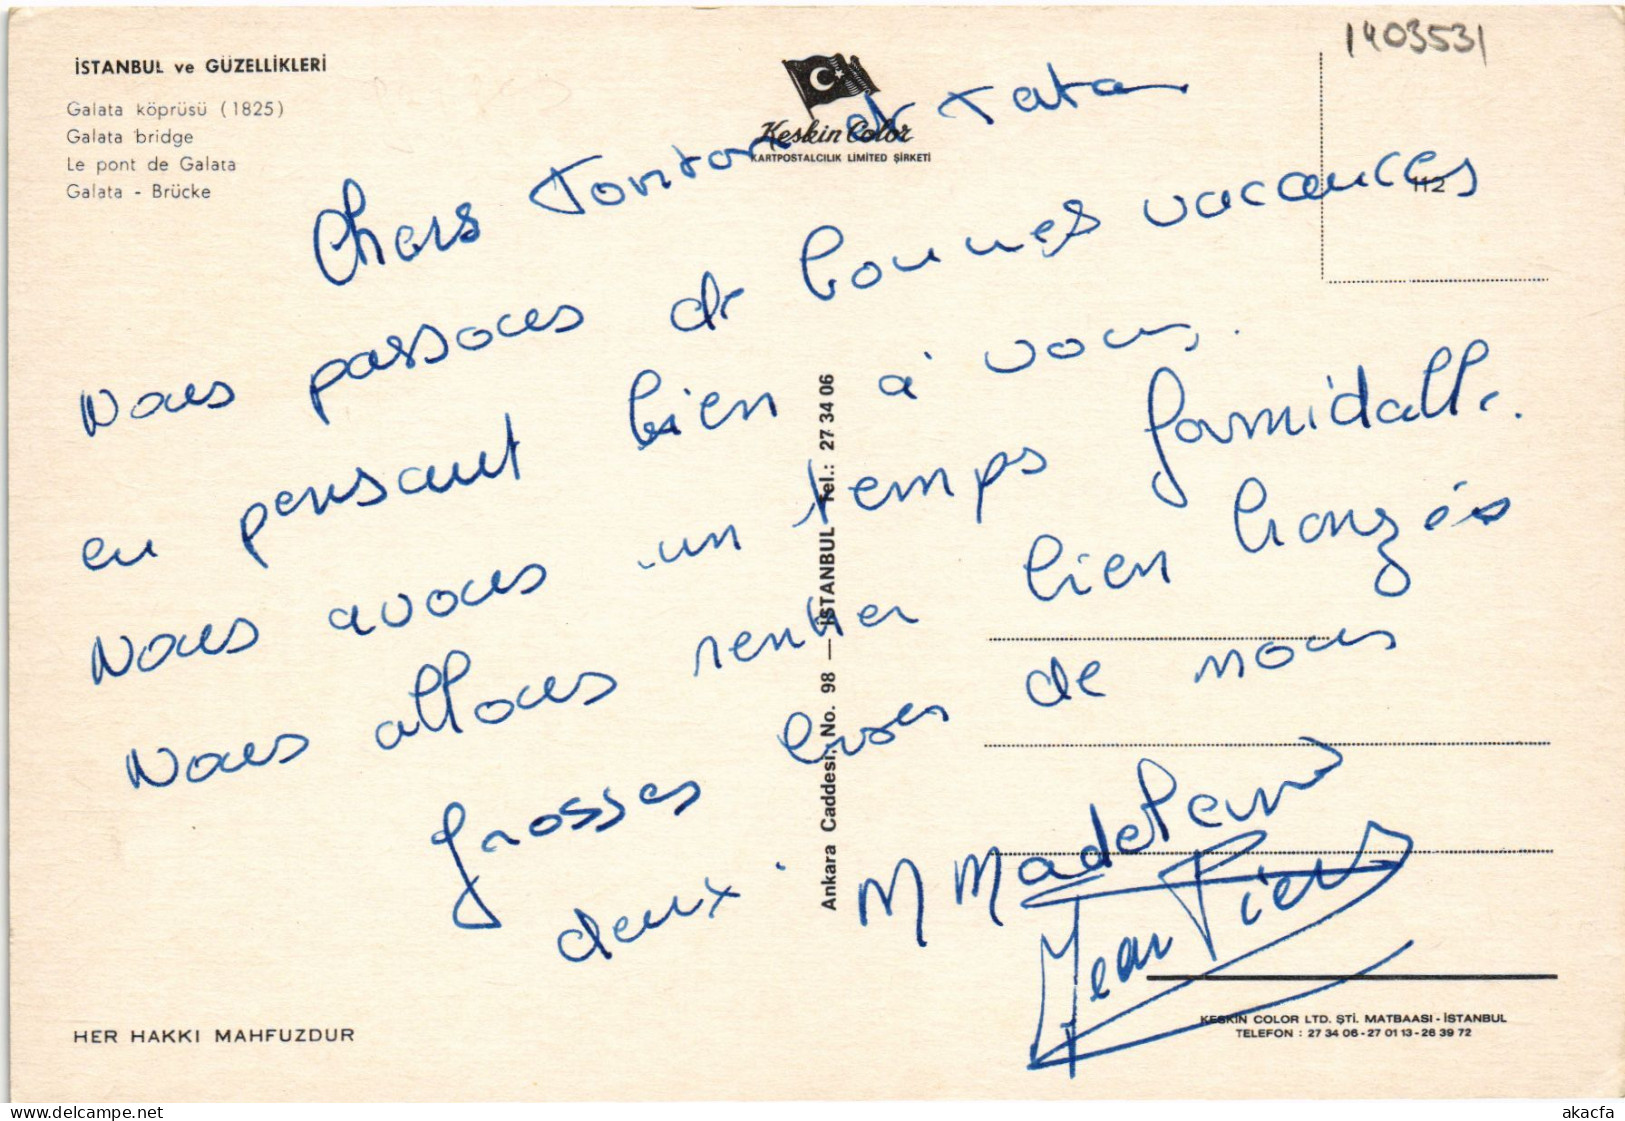 1403531
İSTANBUL ve GÜZELLİKLERİ
Galata köprüsü (1825)
Galata bridge
Le pont de Galata
Galata - Brücke
Keskin Color
KARTPOSTALCILIK LIMITED ŞİRKETİ
112
Chers Tonton et Tata
Nous passons de bonnes vacances
en pensant bien à vous.
Nous avons un temps formidable.
Nous allons rentrer bien bronzés
Grosses bises de nous
deux.
M Madeleine
Jean Pierre
Ankara Caddesi, No. 98 — İSTANBUL Tel.: 27 34 06
HER HAKKI MAHFUZDUR
KESKİN COLOR LTD. ŞTİ. MATBAASI - İSTANBUL
TELEFON : 27 34 06 - 27 01 13 - 26 39 72
delcampe.net
akacfa